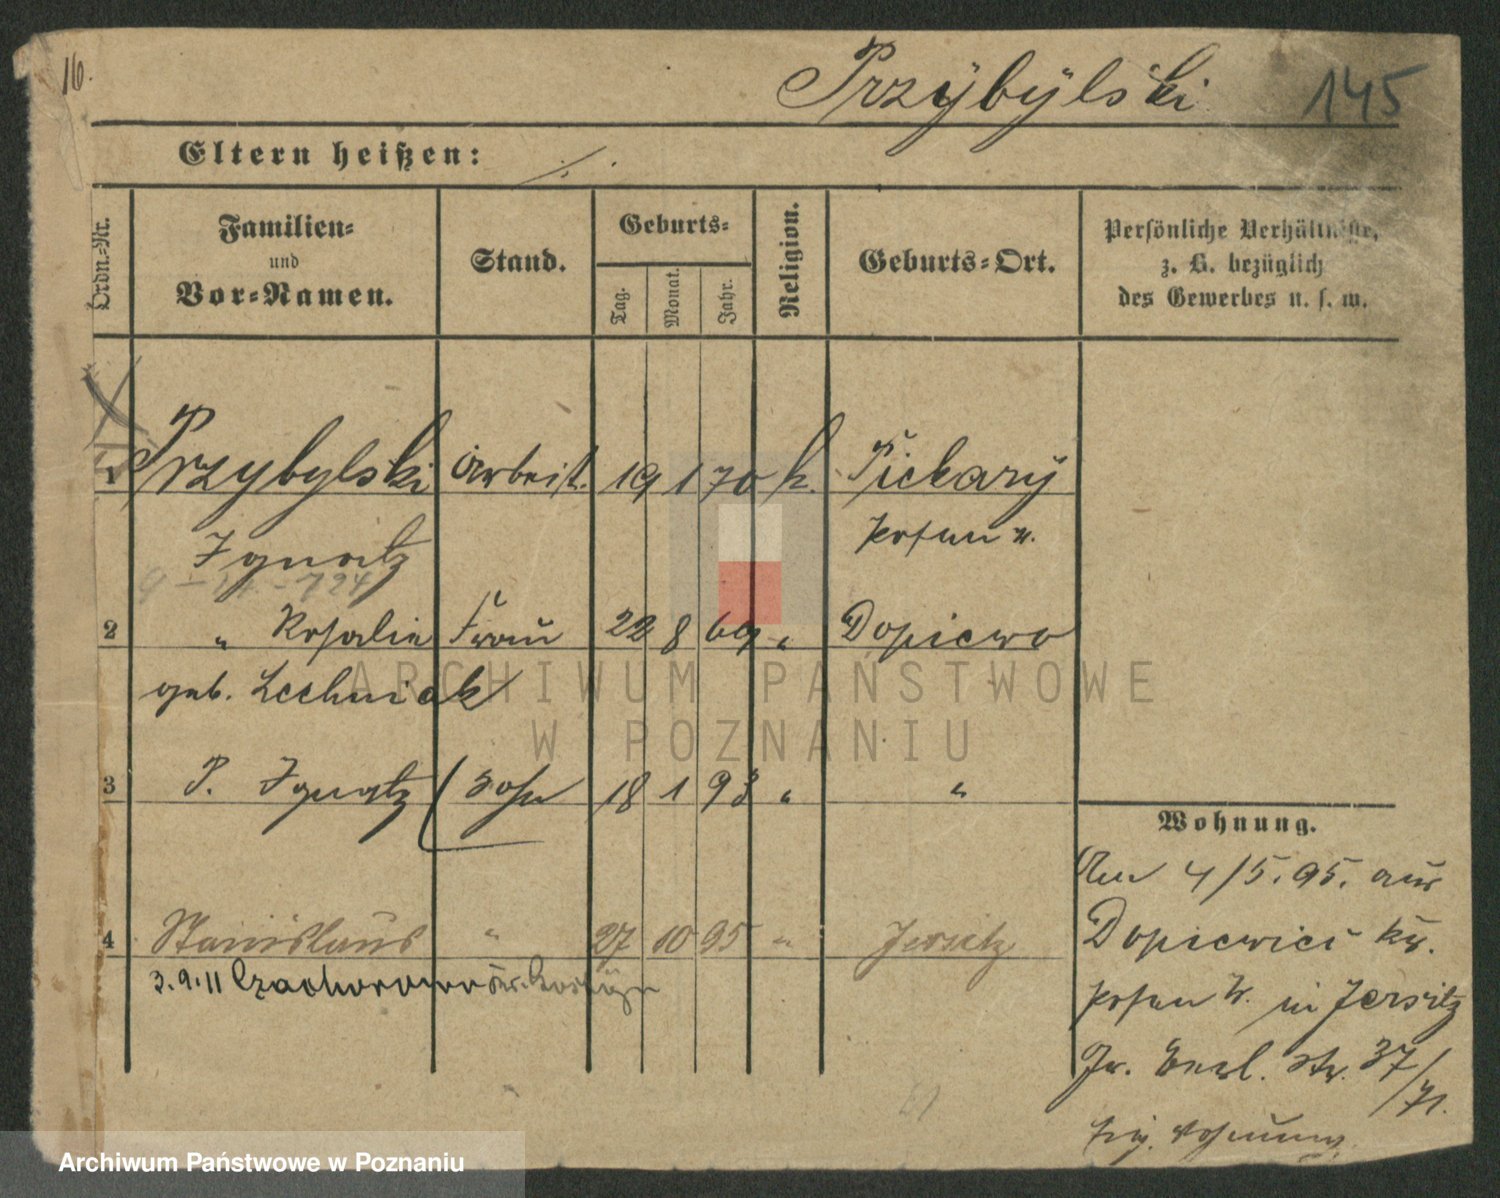 16.
Przÿbÿlski 145
Eltern heißen: ./.
Ordn.-Nr.
Familien-
und
Vor-Namen.
Stand.
Geburts-
Tag.
Monat.
Jahr.
Religion.
Geburts-Ort.
Persönliche Verhältnisse,
z. B. bezüglich
des Gewerbes u. s. w.
1 Przybylski Arbeit. 19 1 70 k. Piekarÿ
Ignatz Posen W.
2 " Rosalie Frau 22 8 69 " Dopiewo
geb. Lechniak
3 P. Ignatz Sohn 18 1 93 " "
4 Stanislaus " 27 10 95 " Jersitz
3.9.11 Czachorowo Kr. Gostÿn
Wohnung.
Am 4/5.95. aus
Dopiewiec Kr.
Posen W. in Jersitz
Gr. Berl. Str. 37/
71.
Wohnung.
ARCHIWUM PAŃSTWOWE
W POZNANIU
Archiwum Państwowe w Poznaniu